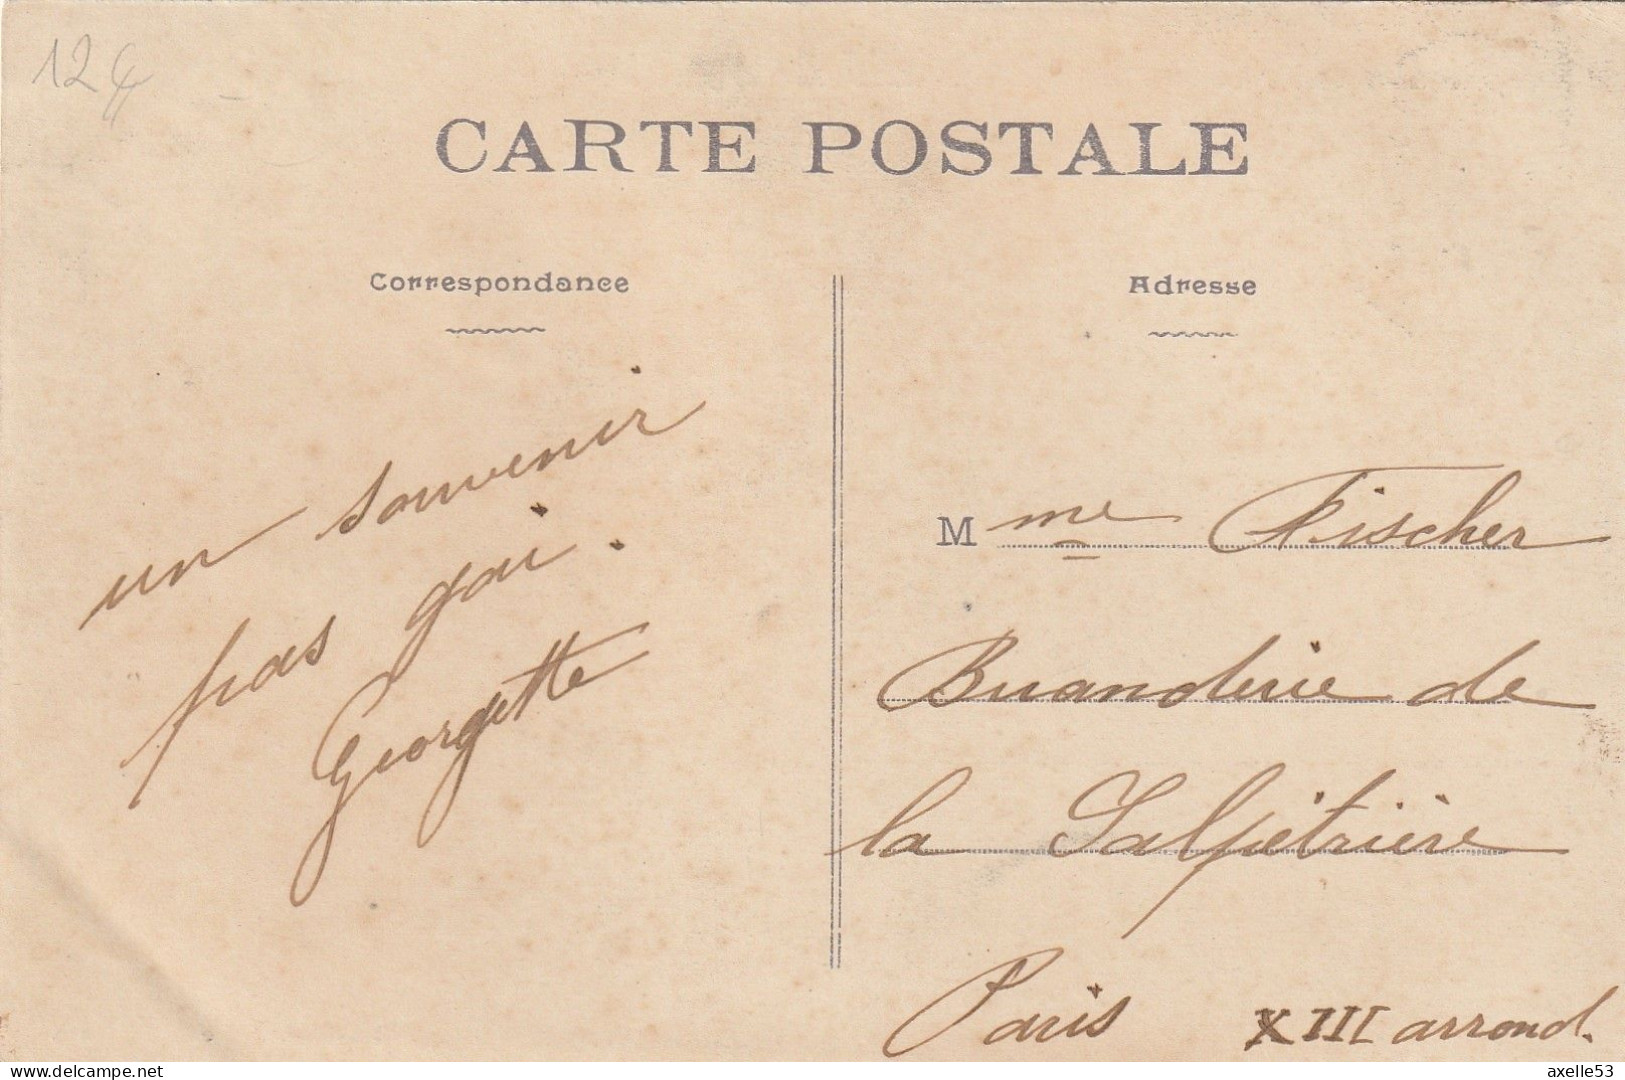 12 €
CARTE POSTALE
Correspondance
un souvenir
pas gai.
Georgette
Adresse
Mme Fischer
Buanderie de
la Salpêtrière
Paris XIII arrond.
delcampe.net
axelle53